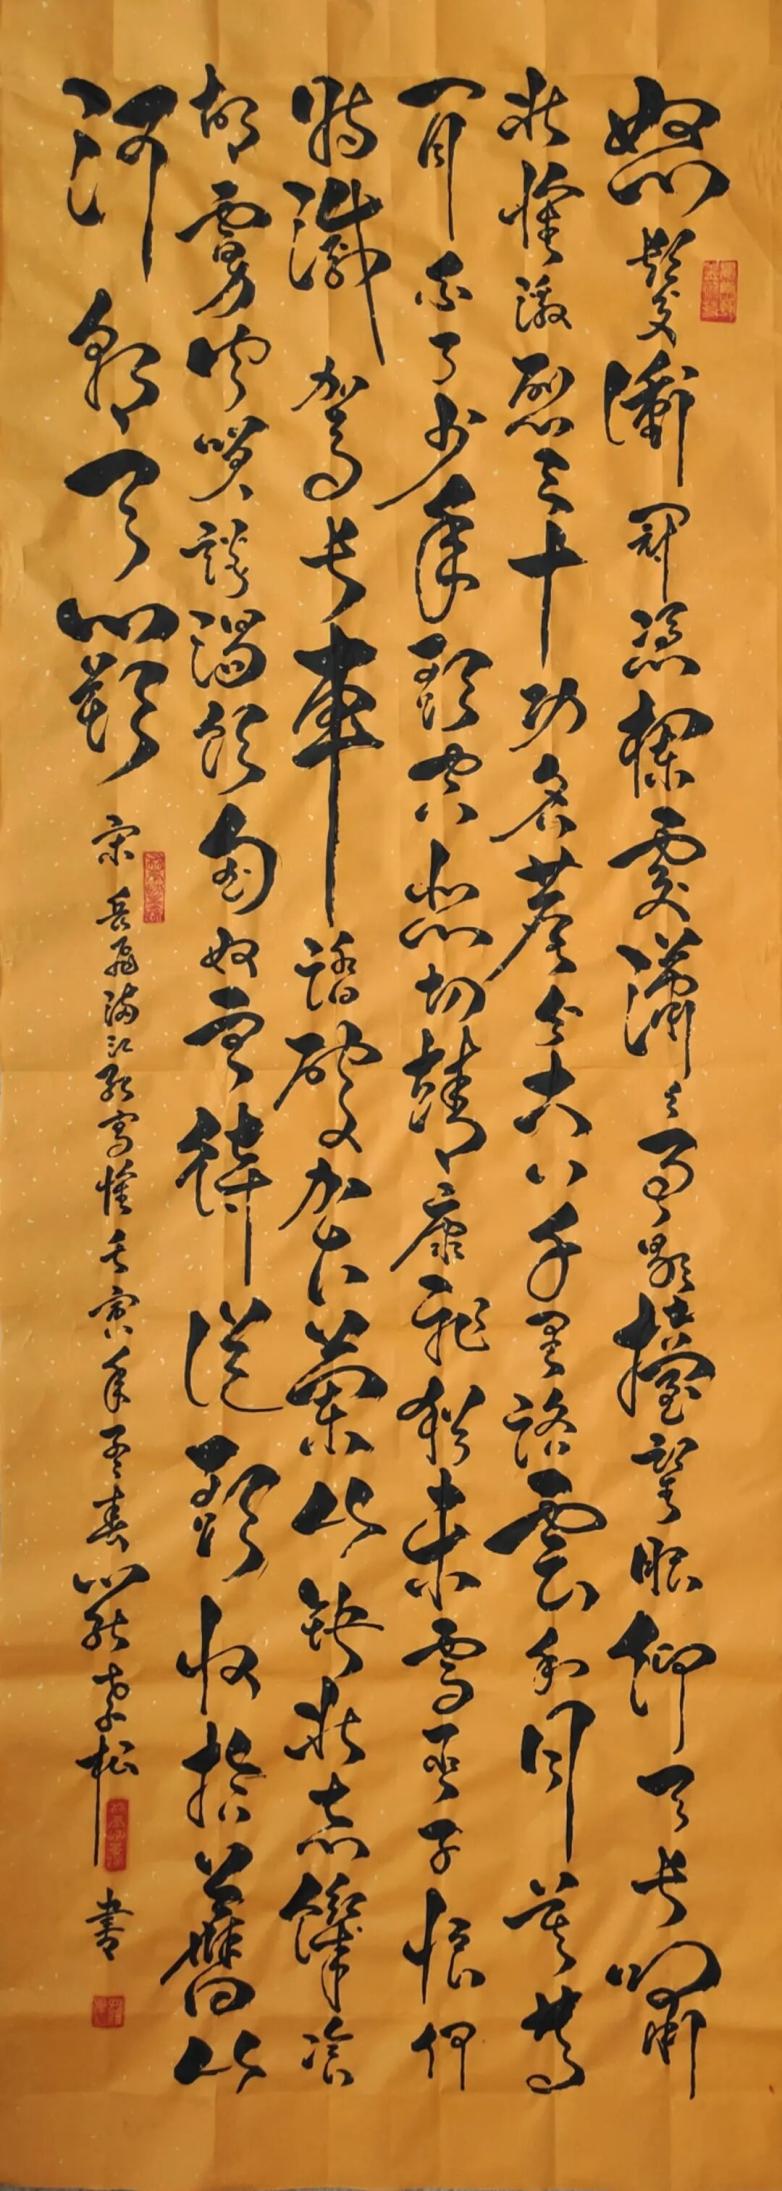 怒髮衝冠憑欄處瀟々雨歇擡望眼仰天長嘯
壯懷激烈三十功名塵與土八千里路雲和月莫等
閒白了少年頭空悲切靖康恥猶未雪臣子恨何
時滅駕長車踏破賀蘭山缺壯志饑飡
胡虜肉笑談渴飲匈奴血待從頭收拾舊山
河朝天闕
宋岳飛滿江紅寫懷壬寅年孟春李松書